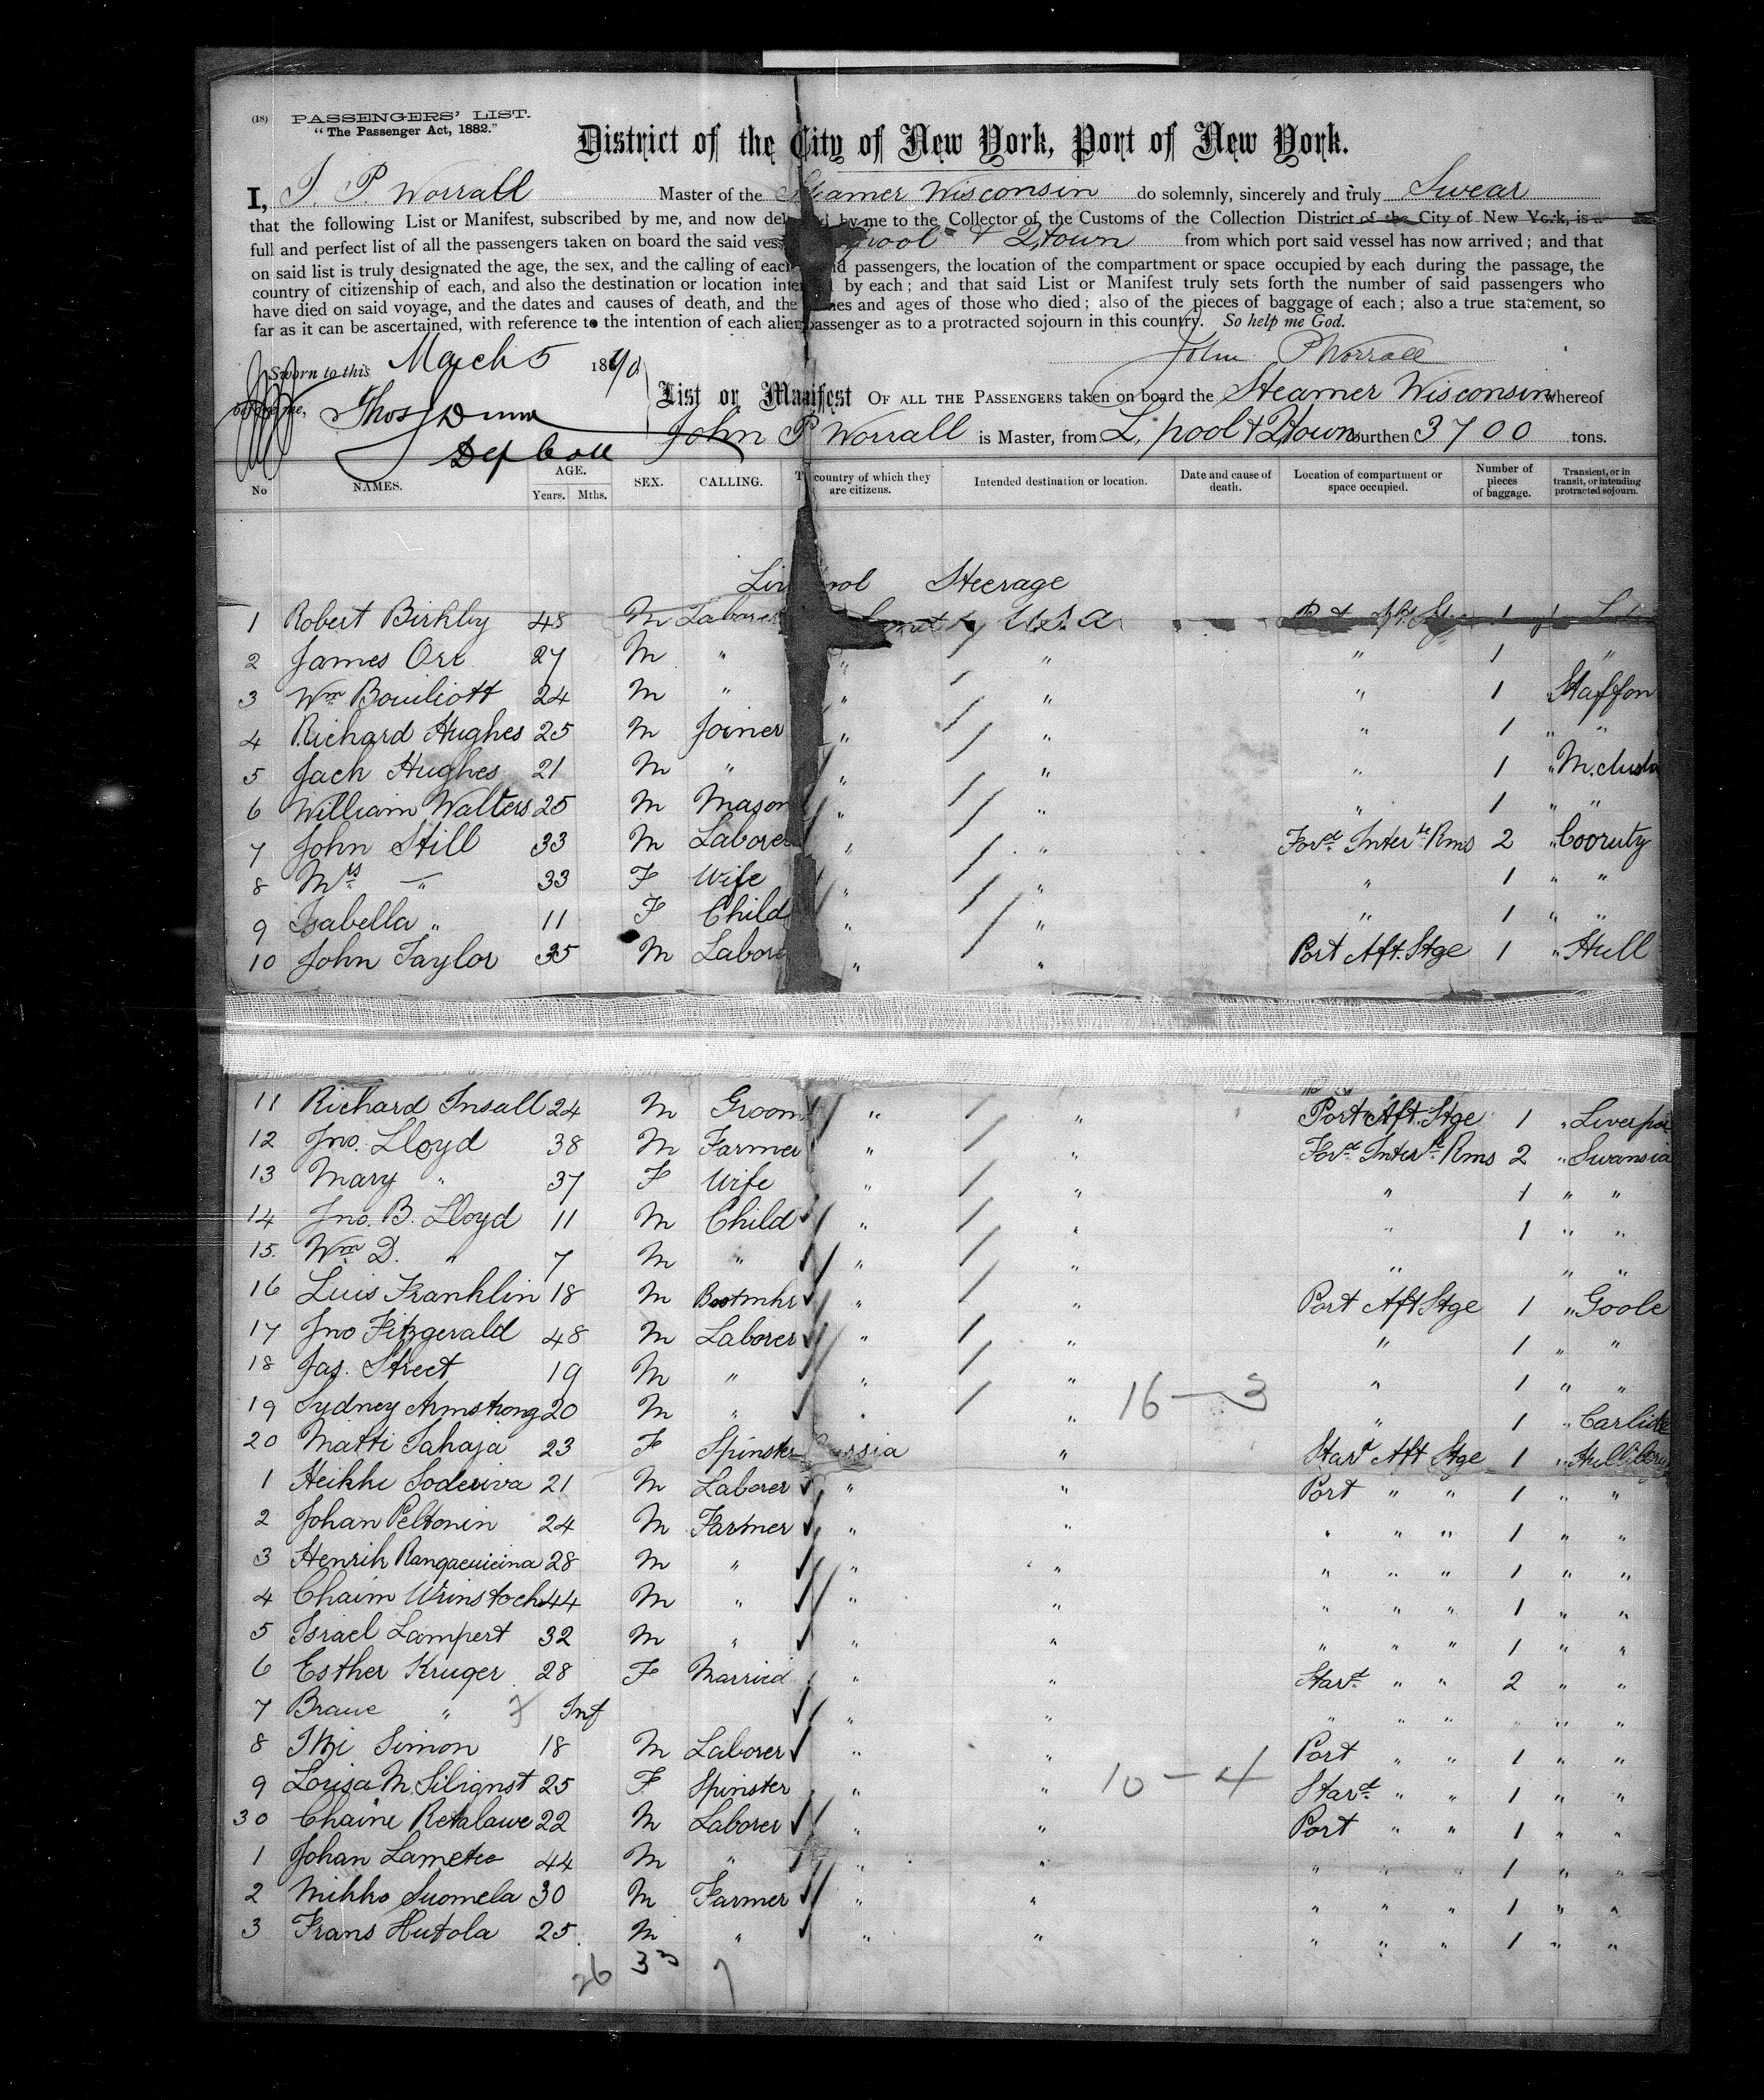 (18) PASSENGERS' LIST.
"The Passenger Act, 1882."
District of the City of New York, Port of New York.
I, J. P. Worrall Master of the Steamer Wisconsin do solemnly, sincerely and truly Swear
that the following List or Manifest, subscribed by me, and now del d by me to the Collector of the Customs of the Collection District of the City of New York, is a
full and perfect list of all the passengers taken on board the said ves pool & Q.town from which port said vessel has now arrived; and that
on said list is truly designated the age, the sex, and the calling of each d passengers, the location of the compartment or space occupied by each during the passage, the
country of citizenship of each, and also the destination or location inte by each; and that said List or Manifest truly sets forth the number of said passengers who
have died on said voyage, and the dates and causes of death, and the mes and ages of those who died; also of the pieces of baggage of each; also a true statement, so
far as it can be ascertained, with reference to the intention of each alien passenger as to a protracted sojourn in this country. So help me God.
John P Worrall
Sworn to this March 5 1890
before me, Thos Dunn
Dep Coll
List or Manifest OF ALL THE PASSENGERS taken on board the Steamer Wisconsin whereof
John P Worrall is Master, from L'pool & Q.town burthen 3700 tons.
No NAMES. AGE. Years. Mths. SEX. CALLING. T country of which they are citizens. Intended destination or location. Date and cause of death. Location of compartment or space occupied. Number of pieces of baggage. Transient, or in transit, or intending protracted sojourn.
Liv ool Steerage
1 Robert Birkby 48 M Laborer U.S.A. 1
2 James Orr 27 M " " " " 1 "
3 Wm Bouiliott 24 M " " " " 1 Staffon
4 Richard Hughes 25 M Joiner " " " 1 " "
5 Jack Hughes 21 M " " " " 1 "
6 William Walters 25 M Mason " " " 1 " "
7 John Still 33 M Laborer " " Ford Interte Rms 2 "
8 Mrs " 33 F Wife " " " 1 " "
9 Isabella " 11 F Child " " " 1 " "
10 John Taylor 35 M Labore " " Port Aft. Stge 1 " Hull
11 Richard Insall 24 M Groom " " Port Aft. Stge 1 " Liverpoo
12 Jno. Lloyd 38 M Farmer " " Ford Interte Rms 2 " Swansia
13 Mary " 37 F Wife " " " 1 " "
14 Jno. B. Lloyd 11 M Child " " " 1 " "
15. Wm D. " 7 M " " " " " "
16 Luis Franklin 18 M Bootmkr " " Port Aft Stge 1 " Goole
17 Jno Fitzgerald 48 M Laborer " " " 1 " "
18 Jas. Street 19 M " " " " 1 " "
19 Sydney Armstrong 20 M " " " 16 — 3 " 1 " Carlisle
20 Matti Sahaja 23 F Spinster Russia " Stard Aft Stge 1 "
1 Heikki Soderiva 21 M Laborer " " Port " " 1 " "
2 Johan Peltonin 24 M Farmer " " " " " 1 " "
3 Henrik 28 M " " " " " " 1 " "
4 Chaim Wrinstoch 44 M " " " " " " 1 " "
5 Israel Lampert 32 M " " " " " " 1 " "
6 Esther Kruger 28 F Married " " Stard " " 2 " "
7 Braue " Inf " " " " " " " "
8 Simon 18 M Laborer " " Port " " 1 " "
9 Louisa M. Silignst 25 F Spinster " " 10 — 4 Stard " " 1 " "
30 Chaine Retalawe 22 M Laborer " " Port " " 1 " "
1 Johan Lameteo 44 M " " " " " " 1 " "
2 Mikko Suomela 30 M Farmer " " " " " 1 " "
3 Frans Hutola 25. M " " " " " " 1 " "
26 33 7